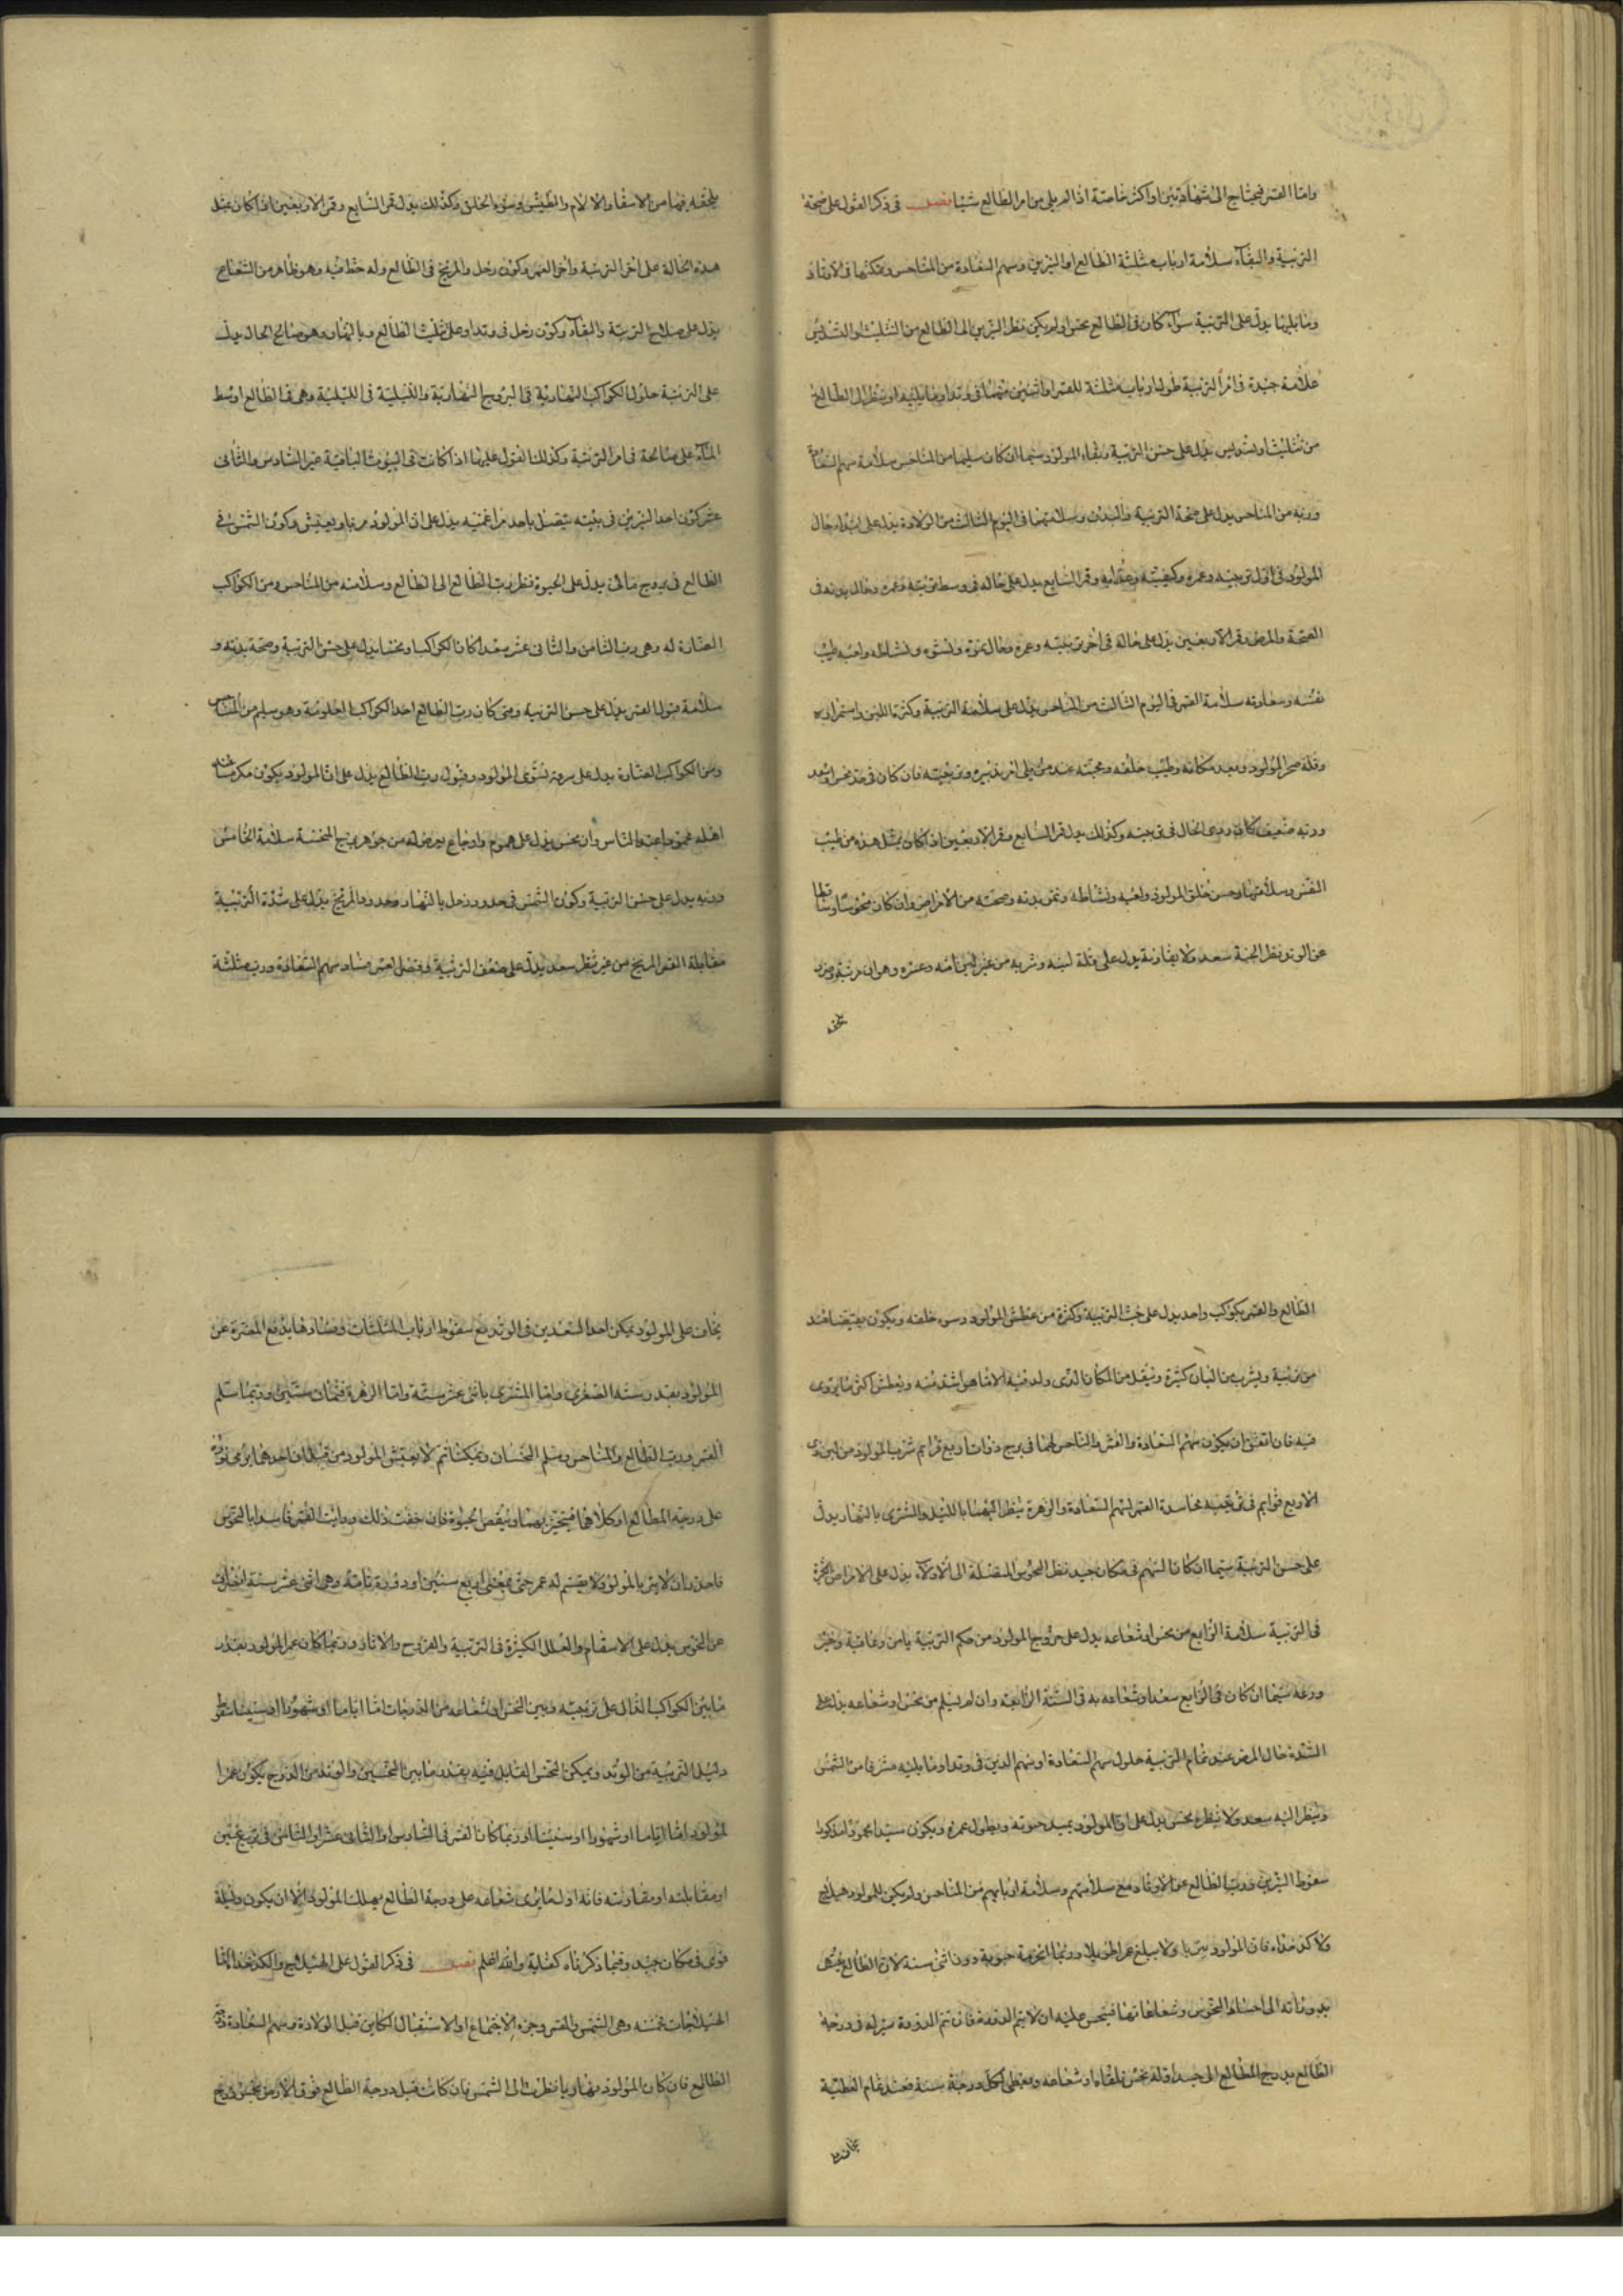 واما القمر فيحتاج الى شهادتين او اكثر خاصة اذا لم يلي من امر الطالع شيئا فصل في ذكر القول على صحة
التربية والبقاء سلامة ارباب مثلثة الطالع او النيرين وسهم السعادة من المناحس وتمكنها في الاوتاد
وما يليها يدل على التربية سواء كان في الطالع نحس او لم يكن نظر النيرين الى الطالع من التثليث والتسديس
علامة جيدة في امر التربية حلول ارباب مثلثة القمر او اثنين منهما في وتد او ما يليه او ينظر الى الطالع
من تثليث او تسديس يدل على حسن التربية وبقاء المولود سيما ان كان سليما من المناحس سلامة سهم السعادة
وربه من المناحس يدل على صحة التربية والبدن وسلامتهما في اليوم الثالث من الولادة يدل على ابتداء حال
المولود في اول تربيته وعمره وكيفيته وغذائه وقمر السابع يدل على حاله في وسط تربيته وعمره وحال بدنه في
الصحة والمرض وقمر الاربعين يدل على حاله في آخر تربيته وعمره وحال نموه ونشوه ونشاطه ولعبه طيب
نفسه وسعادته سلامة القمر في اليوم الثالث من المناحس يدل على سلامة التربية وكثرة اللبن واستمرائه
وقلة ضجر المولود وبعد مكانه وطيب خلقه ومحبته عند من يلي امر تدبيره وتربيته فان كان في حد نحس او سعد
وربه ضعيف كان ردى الحال في تربيته وكذلك يدل قمر السابع وقمر الاربعين اذا كان بمثل هذه من طيب
النفس وسلامتها وحسن خلق المولود ولعبه ونشاطه ونمو بدنه وصحته من الامراض وان كان منحوسا وساقطا
عن الوتد ونظر اليه سعد ولا يقاربه يدل على قلة لبنه وشربه من غير لبن امه وعسره وهوان تربيته
يلحقه
يلحقه فيها من الاسقام والالام والطيش وسوء الخلق وكذلك يدل قمر السابع وقمر الاربعين اذا كان بمثل
هذه الحالة على آخر التربية وآخر العمر وكون زحل والمريخ في الطالع وله حظ فيه وهو طاهر من الشعاع
يدل على صلاح التربية والبقاء وكون زحل في وتد او على تثليث الطالع وبالنهار وهو صالح الحال يدل
على التربية حلول الكواكب النهارية في البروج النهارية والليلية في الليلية وهي في الطالع او وسط
السماء على صالحة في امر التربية وكذلك القول عليها اذا كانت في البيوت الباقية غير السادس والثاني
عشر كون احد النيرين في بيته يتصل باحد يدل على ان المولود يربا ويعيش وكون الشمس في
الطالع في بروج مائي يدل على الحيوة نظر رب الطالع الى الطالع وسلامته من المناحس ومن الكواكب
الضارة له وهي رب الثامن والثاني عشر سعدا كانا الكواكب او نحسا يدل على حسن التربية وصحة بدنه و
سلامة قبول القمر يدل على حسن التربية ومتى كان رب الطالع احد الكواكب العلوية وهو سليم من المناحس
ومن الكواكب الضارة يدل على سرعة نشوى المولود وقبول رب الطالع يدل على ان المولود يكون مكرما عند
اهله محمودا عند الناس وان نحس يدل على هموم واوجاع يعرض له من جوهر برج المنحسة سلامة الخامس
وربه يدل على حسن التربية وكون الشمس في حدود زحل بالنهار وحدود المريخ يدل على شدة التربية
مقابلة القمر المريخ من غير نظر سعد يدل على ضعف التربية وفضل لعسر فساد سهم السعادة ورب مثلثة
الطالع والقمر بكوكب واحد يدل على خبث التربية وكثرة من عطش المولود وسوء خلقه ويكون بغيضا عند
من تربية ويشرب من البان كثيرة وينقل من المكان الذي ولد فيه الى ما هو اشد منه ويعطش اكثر ما يروى
فيه فان اتفق ان يكون سهم السعادة والقمر والناحس لهما في برج ذوات اربع قوائم شرب المولود من لبن ذوى
الاربع قوايم في تربيته مجاسدة القمر لسهم السعادة والزهرة ينظر اليهما بالليل والمشترى بالنهار يدل
على حسن التربية سيما ان كان السهم في مكان جيد نظر النحوس المتصلة الى الاولاء يدل على الامراض
في التربية سلامة الرابع من نحس او شعاعه يدل على خروج المولود من حكم التربية يامن وعافية وخير
ودعة سيما ان كان في الرابع سعد او شعاعه به في السنة الرابعة وان لم يسلم من نحس او شعاعه يدل على
الشدة حال المرض عند تمام التربية حلول سهم السعادة او سهم الدين في وتد او ما يليه مشرقا من الشمس
وينظر اليه سعد ولا ينظره نحس يدل على ان المولود يمتد حيوته ويطول عمره ويكون سيدا محمودا مذكورا
سقوط النيرين ورب الطالع عن الاوتاد مع سلامتهم وسلامة اربابهم من المناحس ولم يكن للمولود هيلاج
ولا كدخذاه فان المولود يتربا ولا يبلغ عمرا طويلا وربما انخرمة حيوته دون اثني سنة لان الطالع
بدورانه الى اجساد النحوس وشعاعاتها فينحس عليه ان لا يتم الدورة فان تم الدورة سير له في درجة
الطالع بدرج المطالع الى جسد اوله نحس تلقاه او شعاعه ويعطى لكل درجة سنة فعند تمام العطية
يخاف
يخاف على المولود تمكن احد السعدين في الوتد مع سقوط ارباب المثلثات وفسادها يدفع المضرة عن
المولود بقدر سنه الصغرى واما المشترى باثنى عشر سنة واما الزهرة فثمان سنين وربما سلم
القمر ورب الطالع والمناحس وسلم النحسان وتمكنا ثم لا يعيش المولود من قبل ان احدهما يرمى نوره
على درجة الطالع او كلاهما فيتحيز بها وينقص الحيوة فان خفت ذلك ورايت القمر فاسدا بالنحوس
فاحذر ان لا يتربا المولود ولا يقسم له عمر حتى يمضى اربع سنين او دورة تامة وهي اثنى عشر سنة اتصال
عن النحوس يدل على الاسقام والعلل الكثيرة في التربية والقروح والاثار وربما كان عمر المولود بقدر
ما بين الكواكب الدال على تربيته وبين النحس او شعاعه من الدرجات اما اياما او شهورا او سنينا سقوط
دليل التربية من الوتد وتمكن النحس القابل فيه بقدر ما بين النحسين والوتد من الدرج يكون عمر ا
لمولود اما اياما او شهورا او سنينا او ربما كان القمر في السادس او الثاني عشر او الثامن في تربيع نحسين
او مقابلته او مقارنته فانه اول ما يرى شعاعه على درجة الطالع يهلك المولود الا ان يكون دليله
قوى في مكان جيد وفيما ذكرناه كفاية والله اعلم فصل في ذكر القول على الهيلاج والكدخذا اما
الهيلاجات خمسه وهي الشمس والقمر وجزء الاجتماع او الاستقبال الكاين قبل الولادة وسهم السعادة ودرجة
الطالع فان كان المولود نهاريا نظرت الى الشمس فان كانت قبل درجة الطالع فوق الارض بخمس درج